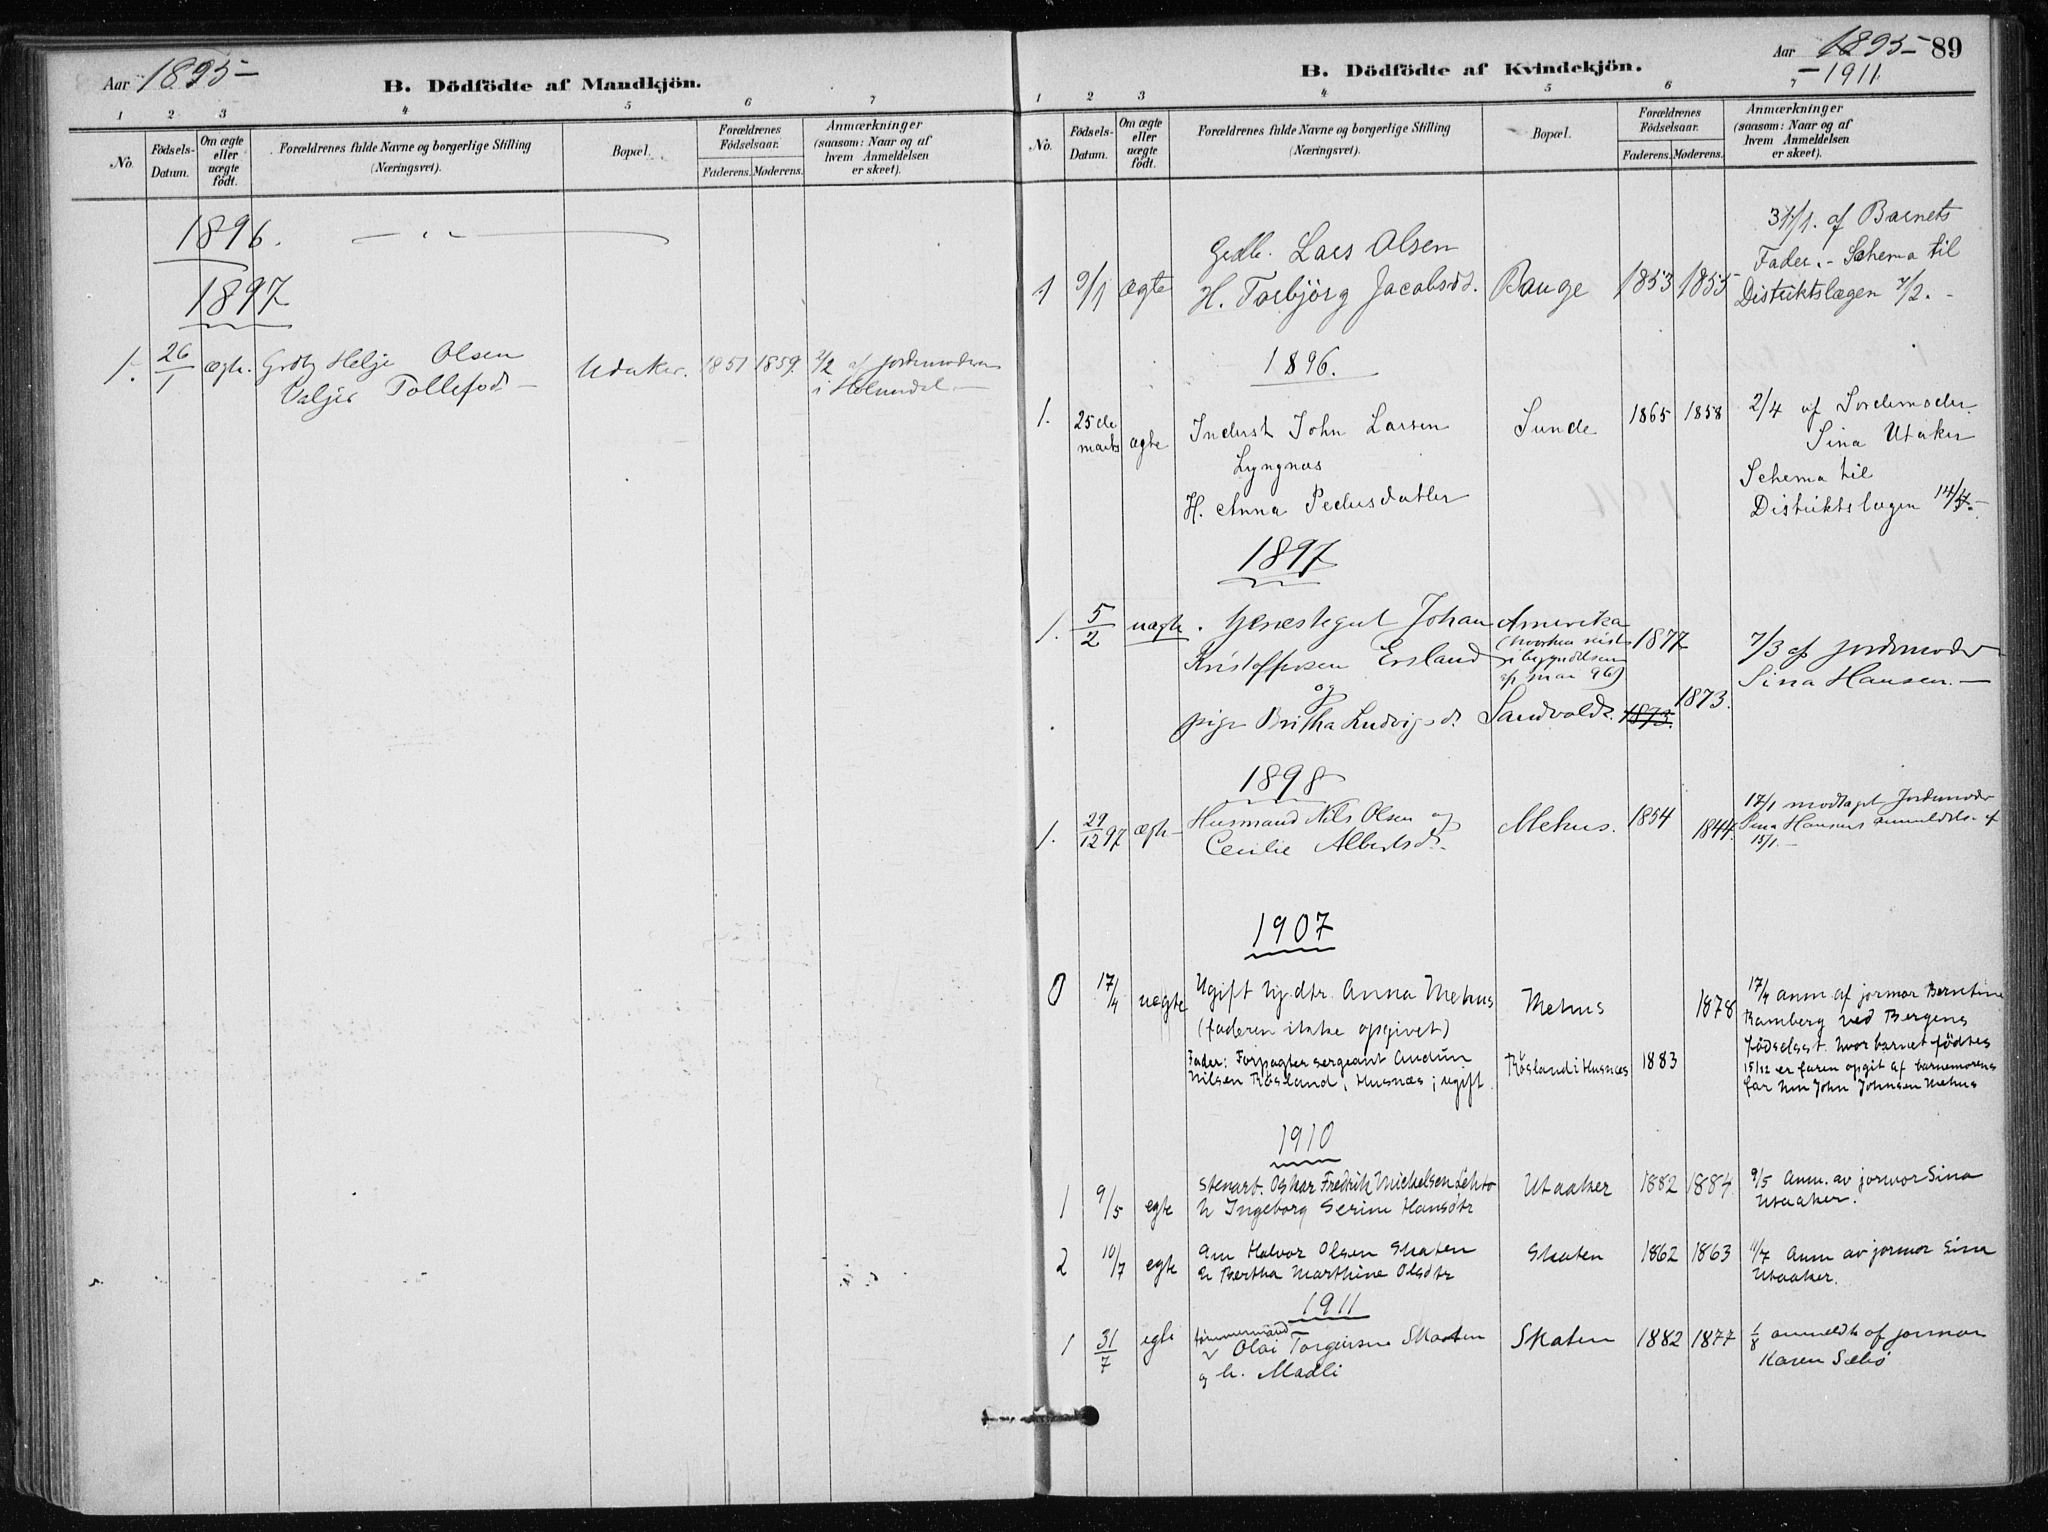 Aar 1895-
B. Dödfödte af Mandkjön.
1 2 3 4 5 6 7
No.
Födsels-Datum.
Om ægte eller uægte födt.
Forældrenes fulde Navne og borgerlige Stilling
(Næringsvei).
Bopæl.
Forældrenes Födselsaar.
Faderens. Moderens.
Anmærkninger
(saasom: Naar og af
hvem Anmeldelsen
er skeet).
1896. — " —
1897
1. 26/1 ægte. Helje Olsen Utaker. 1851 1859. 2/2 af jordemoderen
Valjer Tollefsd. — i Holmedal. —
Aar 1895- 89
-1911.
B. Dödfödte af Kvindekjön.
1 2 3 4 5 6 7
No.
Födsels-Datum.
Om ægte eller uægte födt.
Forældrenes fulde Navne og borgerlige Stilling
(Næringsvei).
Bopæl.
Forældrenes Födselsaar.
Faderens. Moderens.
Anmærkninger
(saasom: Naar og af
hvem Anmeldelsen
er skeet).
31/1. af Barnets
Gdbr. Lars Olsen Fader. - Schema til
1 9/1 ægte H. Torbjörg Jacobsdt. Bauge 1853 1855 Distriktslægen /2. -
1896.
1. 25de marts ægte Inderst John Larsen Sunde 1865 1858 2/4 af Jordemoder
Lyngnæs Sina Utaker
Schema til
H. Anna Pedersdatter Distriktslægen 14/4.-
1897
1. 5/2 uægte. Tjenestegut Johan Amerika
Kristoffersen Ersland (hvorhen reist 1877 7/3 af jordemoder
i begyndelsen
af mai 96) Sina Hansen. —
og
pige Britha Ludvigsd. Sandvold. 1873. 1873.
1898
1. 29/12 97 ægte- Husmand Nils Olsen og Mehus. 1854 1844. 17/1 modtaget Jordemoder
Cecilie Albertsd. Sina Hansens anmeldelse af
15/1. —
1907
0 17/4 uægte Ugift hj. dtr. Anna Mehus Mehus 1878 17/4 anm. af jormor Berntine
(faderen ikke opgivet) Ramberg ved Bergens
födselsst. hvor barnet födtes
Fader: Forpagter sergeant Audun Røsland i Husnæs 1883 15/12 er faren opgit af barnemorens
Nilsen Røsland, Husnæs; ugift. far John Johnsen Mehus
1910
1 9/5 egte Stenarb. Oskar Fredrik Mickelsen Lekto Utaaker 1882 1884 9/5 Anm. av jormor Sina
h Ingeborg Serine Hansdtr Utaaker.
2 10/7 egte Gm Halvor Olsen Skaten Skaten 1862 1863 11/7 Anm av jormor Sina
h Bertha Marthine Olsdtr Utaaker.
1911
1 31/7 egte tømmermand Olai Torgeirsen Skaten Skaten 1882 1877 1/8 anmeldt af jormor
og h. Madli Karen Sæbø